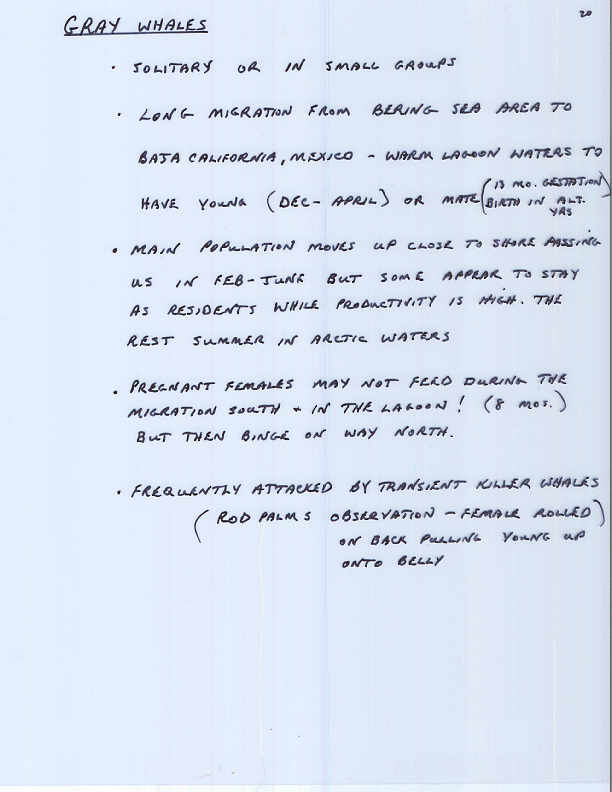 20
GRAY WHALES
· SOLITARY OR IN SMALL GROUPS
· LONG MIGRATION FROM BERING SEA AREA TO
BAJA CALIFORNIA, MEXICO - WARM LAGOON WATERS TO
HAVE YOUNG (DEC - APRIL) OR MATE (13 MO. GESTATION
BIRTH IN ALT.
YRS)
· MAIN POPULATION MOVES UP CLOSE TO SHORE PASSING
US IN FEB-JUNE BUT SOME APPEAR TO STAY
AS RESIDENTS WHILE PRODUCTIVITY IS HIGH. THE
REST SUMMER IN ARCTIC WATERS
· PREGNANT FEMALES MAY NOT FEED DURING THE
MIGRATION SOUTH + IN THE LAGOON! (8 MOS.)
BUT THEN BINGE ON WAY NORTH.
· FREQUENTLY ATTACKED BY TRANSIENT KILLER WHALES
(ROD PALMS OBSERVATION - FEMALE ROLLED)
ON BACK PULLING YOUNG UP
ONTO BELLY